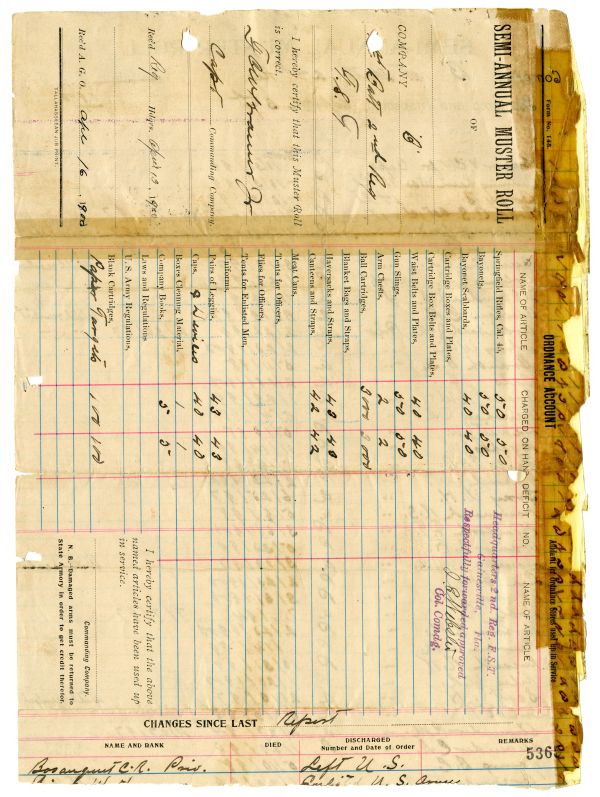 Form No. 148.
SEMI-ANNUAL MUSTER ROLL
OF
COMPANY "B"
1st Batt 2nd Reg
F. S. G
I hereby certify that this Muster Roll
is correct.
Capt Commanding Company.
Rec'd Reg Hdqrs. April 13, 1900
Rec'd A. G. O. Apl 16 1900
TALLAHASSEEAN JOB PRINT.
ORDNANCE ACCOUNT
NAME OF ARTICLE CHARGED ON HAND DEFICIT NO. NAME OF ARTICLE
Springfield Rifles, Cal. 45, 50 50
Bayonets, 50 50
Bayonet Scabbards, 40 40
Cartridge Boxes and Plates,
Cartridge Box Belts and Plates,
Waist Belts and Plates, 40 40
Gun Slings, 50 50
Arm Chests, 2 2
Ball Cartridges, 3000 2000
Blanket Bags and Straps,
Haversacks and Straps, 43 43
Canteens and Straps, 42 42
Meat Cans,
Tents for Officers,
Flies for Officers,
Tents for Enlisted Men,
Uniforms,
Pairs of Leggins, 43 43
Caps, 40 40
Boxes Cleaning Material, 1 1
Company Books, 5 5
Laws and Regulations
U. S. Army Regulations,
Blank Cartridges,
Paper Targets 100 100
Headquarters 2nd. Reg. F. S. T.
Gainesville, Fla.
Respectfully forwarded approved
Col. Comdg.
I hereby certify that the above
named articles have been used up
in service.
Commanding Company.
N. B.—Damaged arms must be returned to
State Armory in order to get credit therefor.
CHANGES SINCE LAST Report
NAME AND RANK DIED DISCHARGED
Number and Date of Order REMARKS
5363
Bosanquet C. R. Priv. Left U. S.